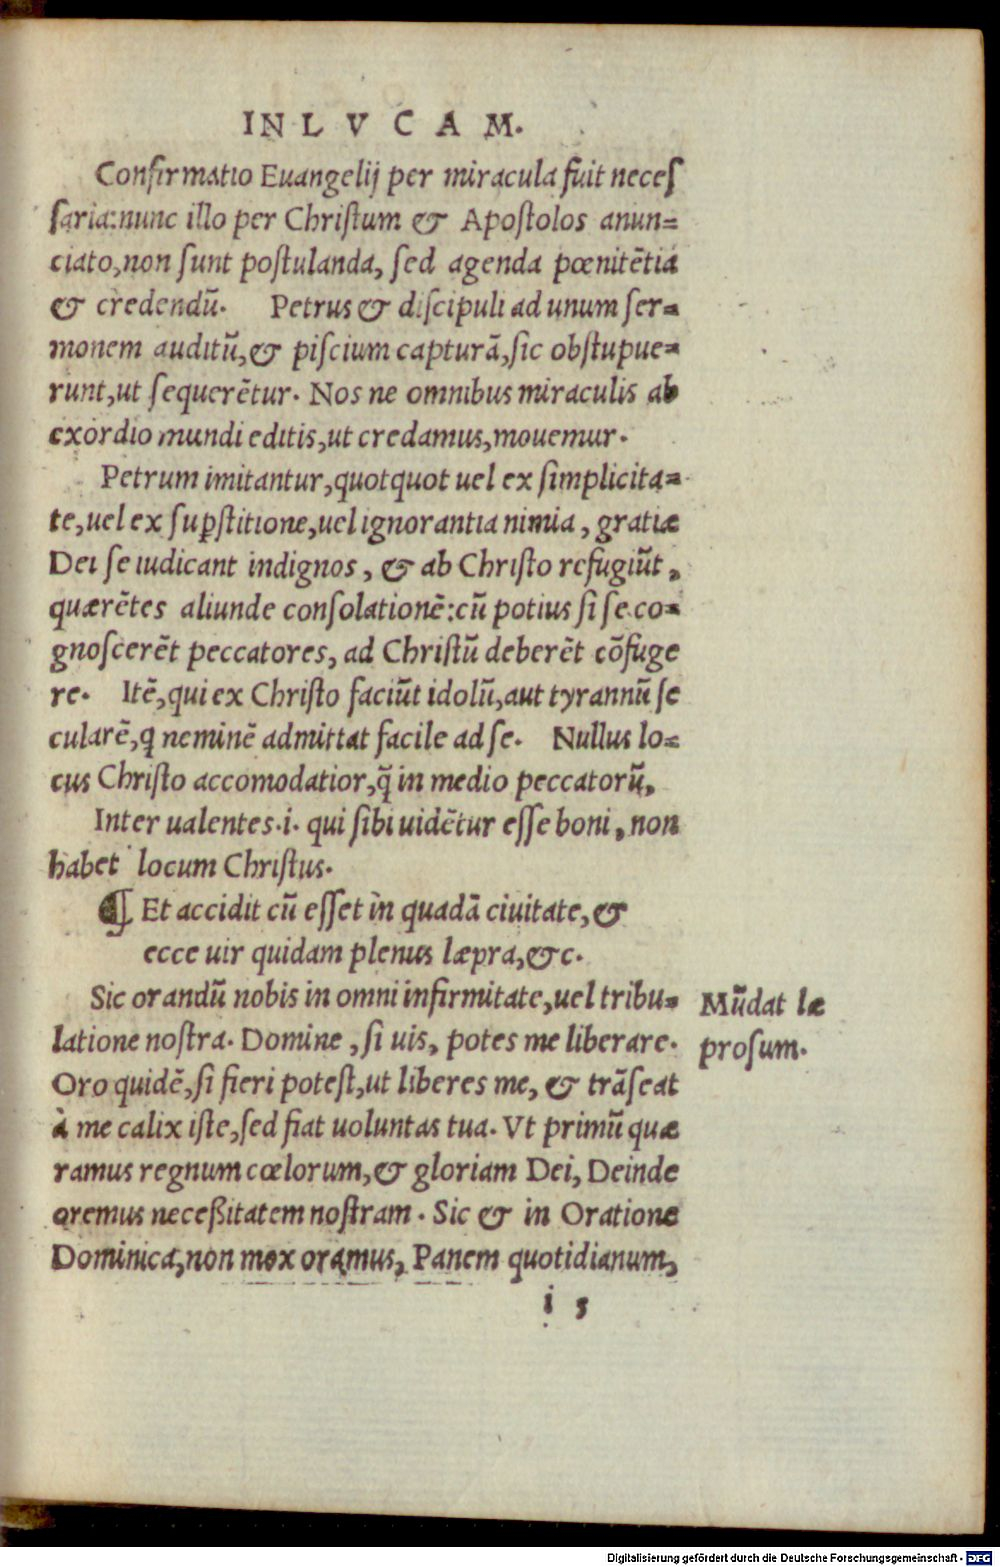 IN L V C A M.
Confirmatio Euangelij per miracula fuit neceſ
ſaria:nunc illo per Chriſtum & Apoſtolos anun=
ciato,non ſunt poſtulanda, ſed agenda pœnitētia
& credendū. Petrus & diſcipuli ad unum ſer=
monem auditū,& piſcium capturā,ſic obſtupue=
runt,ut ſequerētur. Nos ne omnibus miraculis ab
exordio mundi editis,ut credamus,mouemur.
Petrum imitantur,quotquot uel ex ſimplicita=
te,uel ex ſuꝑſtitione,uel ignorantia nimia, gratiæ
Dei ſe iudicant indignos, & ab Chriſto refugiūt,
quærētes aliunde conſolationē:cū potius ſi ſe co=
gnoſcerēt peccatores, ad Chriſtū deberēt cōfuge
re. Itē,qui ex Chriſto faciūt idolū,aut tyrannū ſe
cularē,q neminē admittat facile ad ſe. Nullus lo=
cus Chriſto accomodatior,q̄ in medio peccatorū,
Inter ualentes.i. qui ſibi uidētur eſſe boni, non
habet locum Chriſtus.
¶ Et accidit cū eſſet in quadā ciuitate,&
ecce uir quidam plenus læpra,&c.
Sic orandū nobis in omni infirmitate,uel tribu=
latione noſtra. Domine, ſi uis, potes me liberare.
Oro quidē,ſi fieri poteſt,ut liberes me, & trāſeat
à me calix iſte,ſed fiat uoluntas tua. Vt primū quæ
ramus regnum cœlorum,& gloriam Dei, Deinde
oremus neceßitatem noſtram. Sic & in Oratione
Dominica,non mox oramus, Panem quotidianum,
Mūdat læ
proſum.
i 5
Digitalisierung gefördert durch die Deutsche Forschungsgemeinschaft - DFG